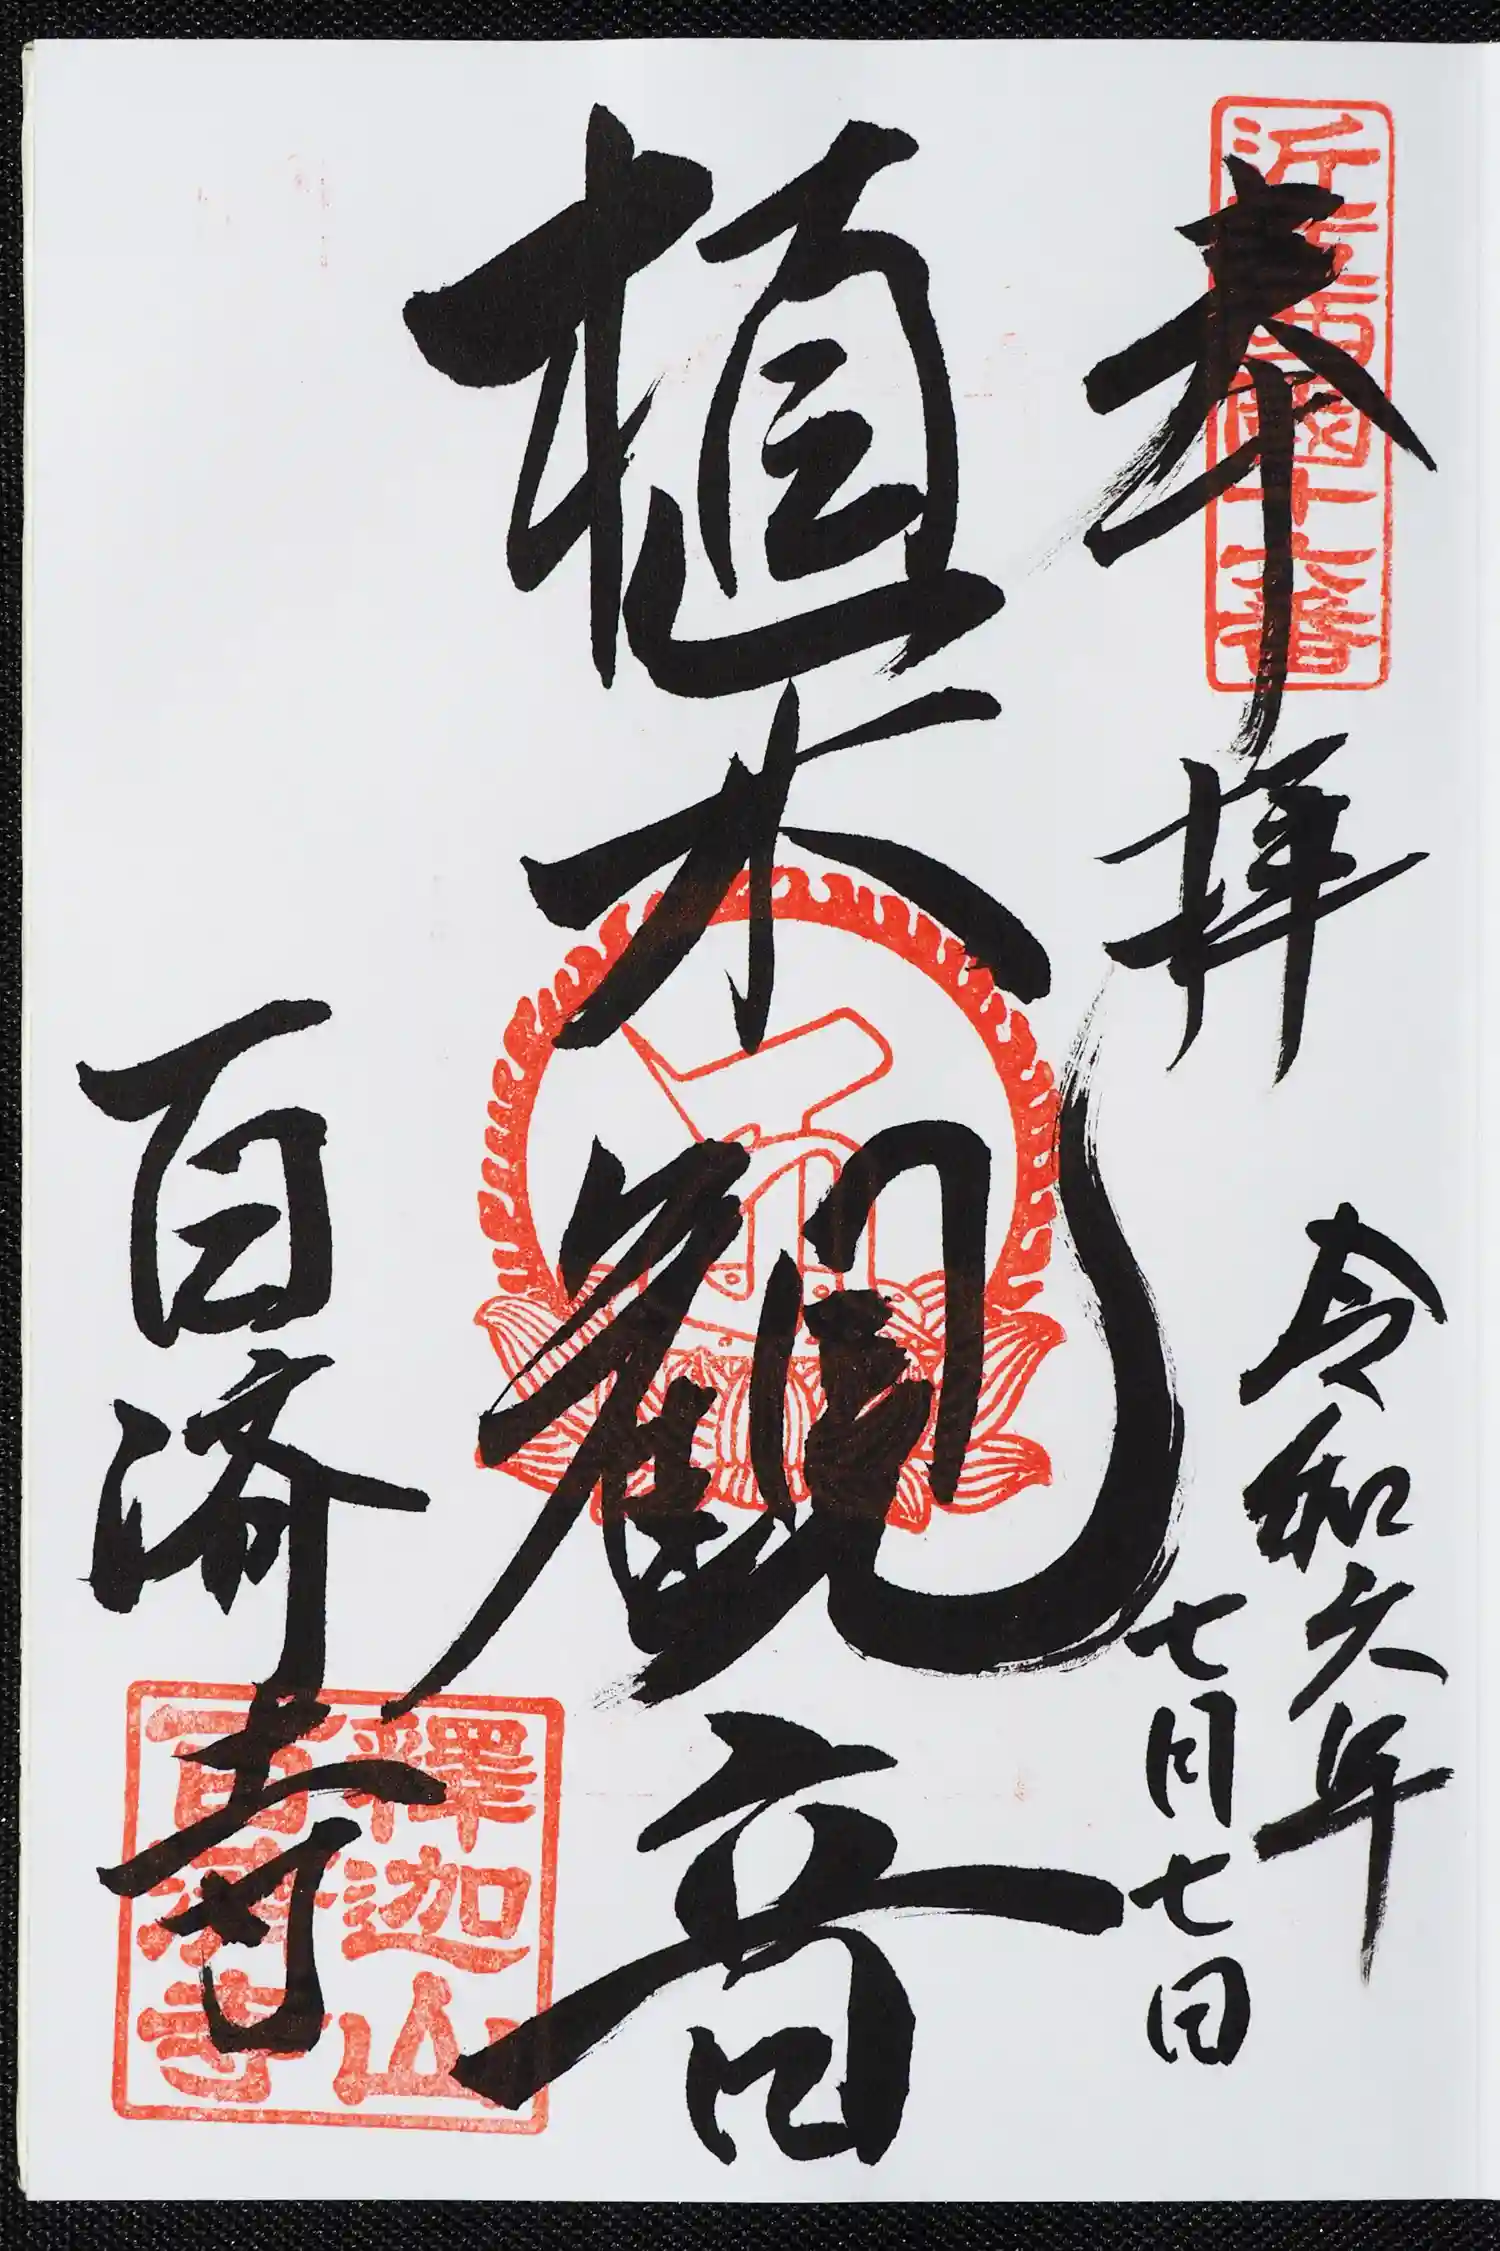 近江西國十六番
奉拝
令和六年
七月七日
植木観音
百済寺
釋迦山
百濟寺